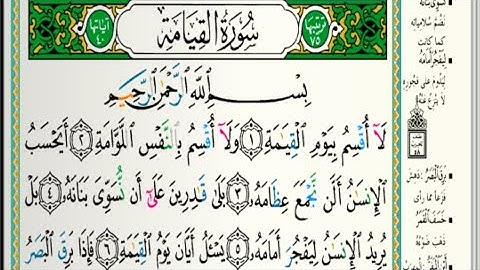 ترتيبها ٧٥
سُورَةُ القِيَامَةِ
آياتها ٤٠
بِسْمِ اللَّهِ الرَّحْمَٰنِ الرَّحِيمِ
لَآ أُقْسِمُ بِيَوْمِ الْقِيَٰمَةِ ۝١ وَلَآ أُقْسِمُ بِالنَّفْسِ اللَّوَّامَةِ ۝٢ أَيَحْسَبُ
الْإِنسَٰنُ أَلَّن نَّجْمَعَ عِظَامَهُۥ ۝٣ بَلَىٰ قَٰدِرِينَ عَلَىٰٓ أَن نُّسَوِّىَ بَنَانَهُۥ ۝٤ بَلْ
يُرِيدُ الْإِنسَٰنُ لِيَفْجُرَ أَمَامَهُۥ ۝٥ يَسْـَٔلُ أَيَّانَ يَوْمُ الْقِيَٰمَةِ ۝٦ فَإِذَا بَرِقَ الْبَصَرُ
نُسَوِّيَ بَنَانَهُ
نضم سلامياته
كما كانت
لِيَفْجُرَ أَمَامَهُ
ليدوم على فجوره
لا ينزع عنه
بَرِقَ الْبَصَرُ: دهش
فزعا مما رأى
خَسَفَ الْقَمَرُ
ذهب ضوؤه